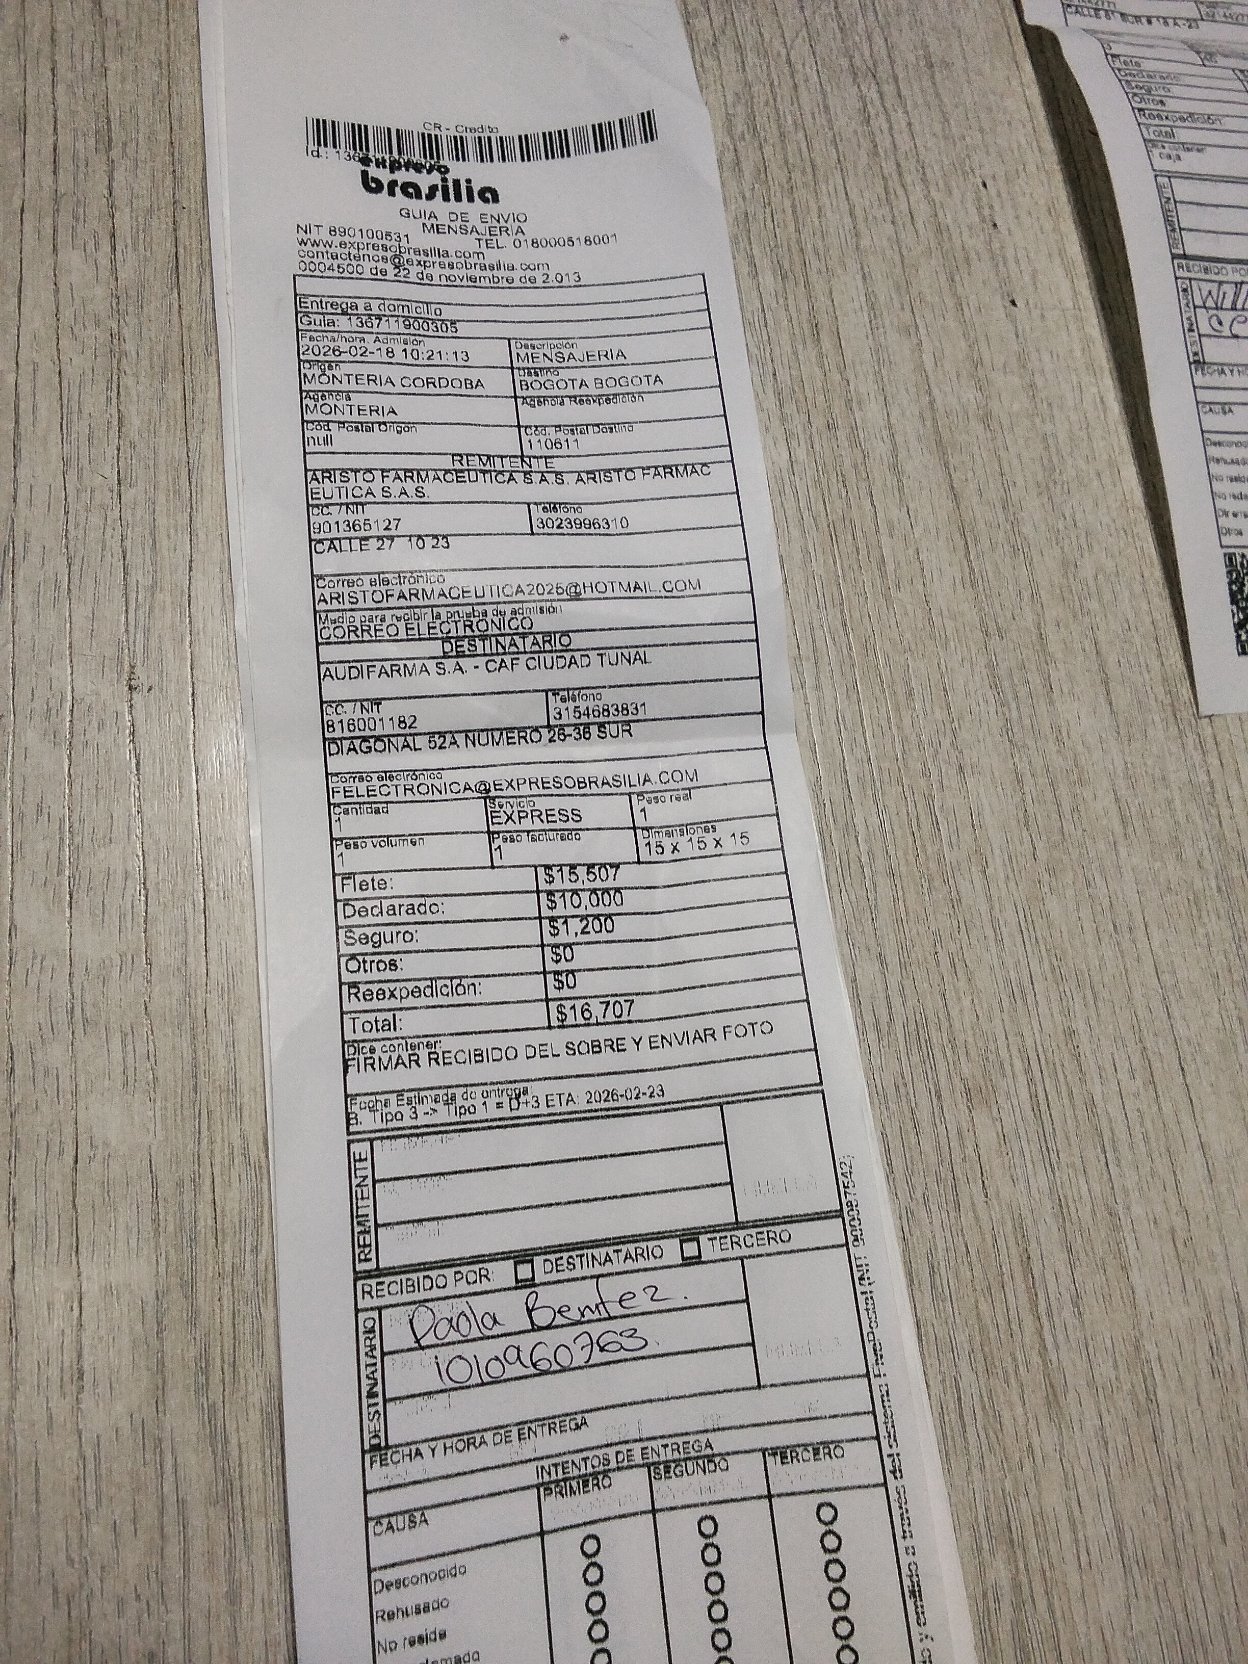 CR - Credito
Id.: 136
expreso
brasilia
GUIA DE ENVIO
MENSAJERIA
NIT 890100531 TEL. 018000518001
www.expresobrasilia.com
contactenos@expresobrasilia.com
0004500 de 22 de noviembre de 2.013
Entrega a domicilio
Guia: 136711900305
Fecha/hora. Admisión Descripción
2026-02-18 10:21:13 MENSAJERIA
Origen Destino
MONTERIA CORDOBA BOGOTA BOGOTA
Agencia Agencia Reexpedición
MONTERIA
Cód. Postal Origen Cód. Postal Destino
null 110611
REMITENTE
ARISTO FARMACEUTICA S.A.S. ARISTO FARMAC
EUTICA S.A.S.
CC. / NIT Teléfono
901365127 3023996310
CALLE 27 10 23
Correo electrónico
ARISTOFARMACEUTICA2025@HOTMAIL.COM
Medio para recibir la prueba de admisión
CORREO ELECTRÓNICO
DESTINATARIO
AUDIFARMA S.A. - CAF CIUDAD TUNAL
CC. / NIT Teléfono
816001182 3154683831
DIAGONAL 52A NUMERO 26-36 SUR
Correo electrónico
FELECTRONICA@EXPRESOBRASILIA.COM
Cantidad Servicio Peso real
1 EXPRESS 1
Peso volumen Peso facturado Dimensiones
1 1 15 x 15 x 15
Flete: $15,507
Declarado: $10,000
Seguro: $1,200
Otros: $0
Reexpedición: $0
Total: $16,707
Dice contener:
FIRMAR RECIBIDO DEL SOBRE Y ENVIAR FOTO
Fecha Estimada de entrega
B. Tipo 3 -> Tipo 1 = D+3 ETA: 2026-02-23
REMITENTE
RECIBIDO POR: DESTINATARIO TERCERO
DESTINATARIO
Paola Benitez.
1010960763.
FECHA Y HORA DE ENTREGA
INTENTOS DE ENTREGA
CAUSA PRIMERO SEGUNDO TERCERO
Desconocido
Rehusado
No reside
CALLE 51 SUR # 18 A -23
Flete
Declarado
Seguro
Otros
Reexpedición
Total
Dice contener
caja
REMITENTE
RECIBIDO PO
DESTINATARIO
Willi
FECHA Y H
CAUSA
Desconoc
Rehusado
No resid
Otros